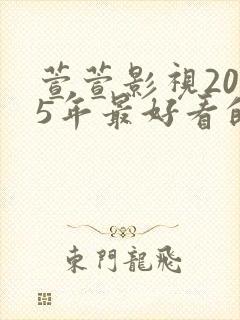 萱萱影視20
5年最好看的
東門龍飛